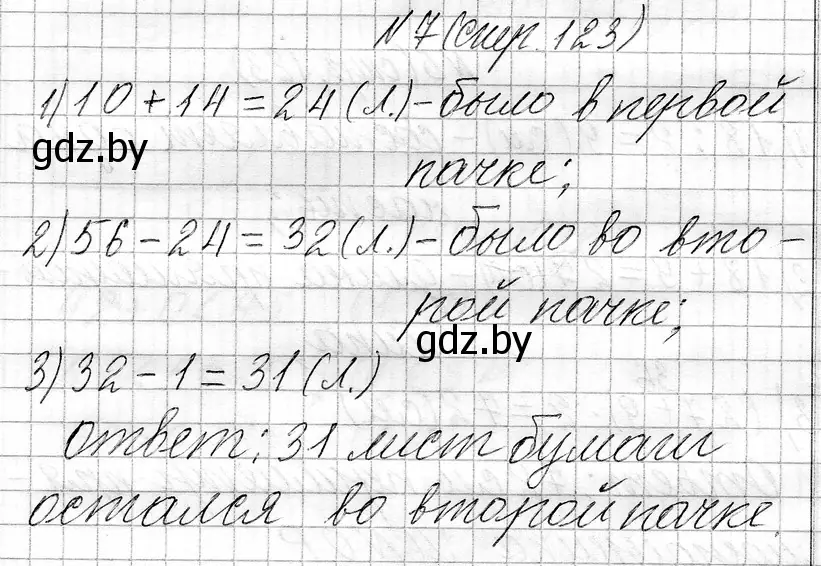 № 7 (стр. 123)
1) 10 + 14 = 24 (л.) - было в первой
gdz.by
пачке;
2) 56 - 24 = 32 (л.) - было во вто-
рой пачке;
gdz.by
3) 32 - 1 = 31 (л.)
Ответ: 31 лист бумаги
остался во второй пачке.